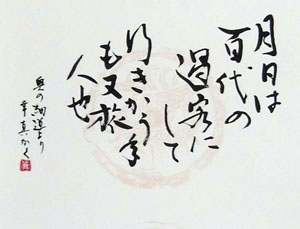 月日は
百代の
過客に
して
行きかう年
も又旅
人也
奥の細道より
幸真かく